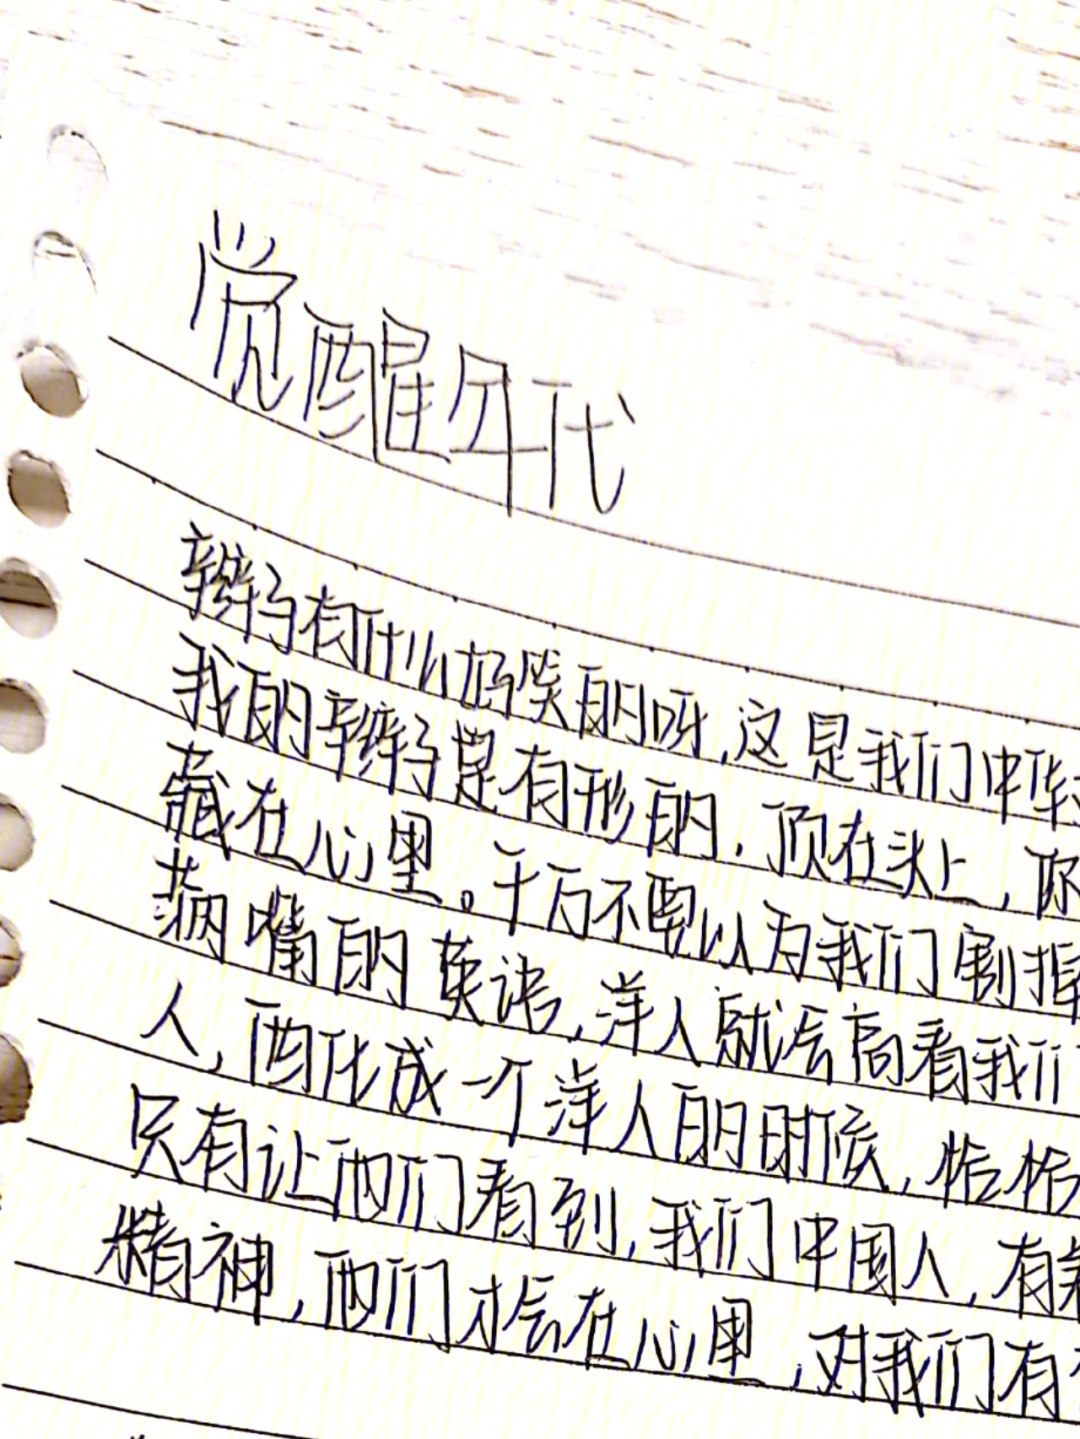 觉醒年代
辫子有什么好笑的呀,这是我们中华
我的辫子是有形的,顶在头上,你
藏在心里。千万不要以为我们割掉
满嘴的英语,洋人就会高看我们
人,西化成一个洋人的时候,恰恰
只有让他们看到,我们中国人,有
精神,他们才会在心里,对我们有